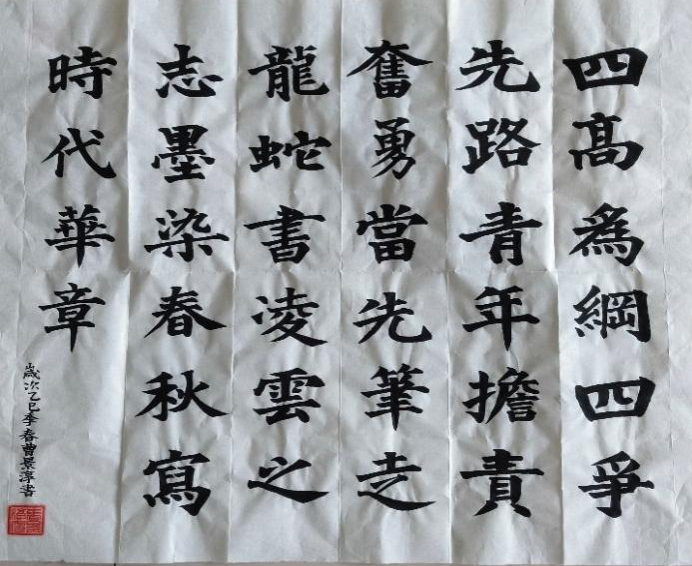 四高為綱四爭
先路青年擔責
奮勇當先筆走
龍蛇書凌雲之
志墨染春秋寫
時代華章
歲次乙巳季春曹景淳書